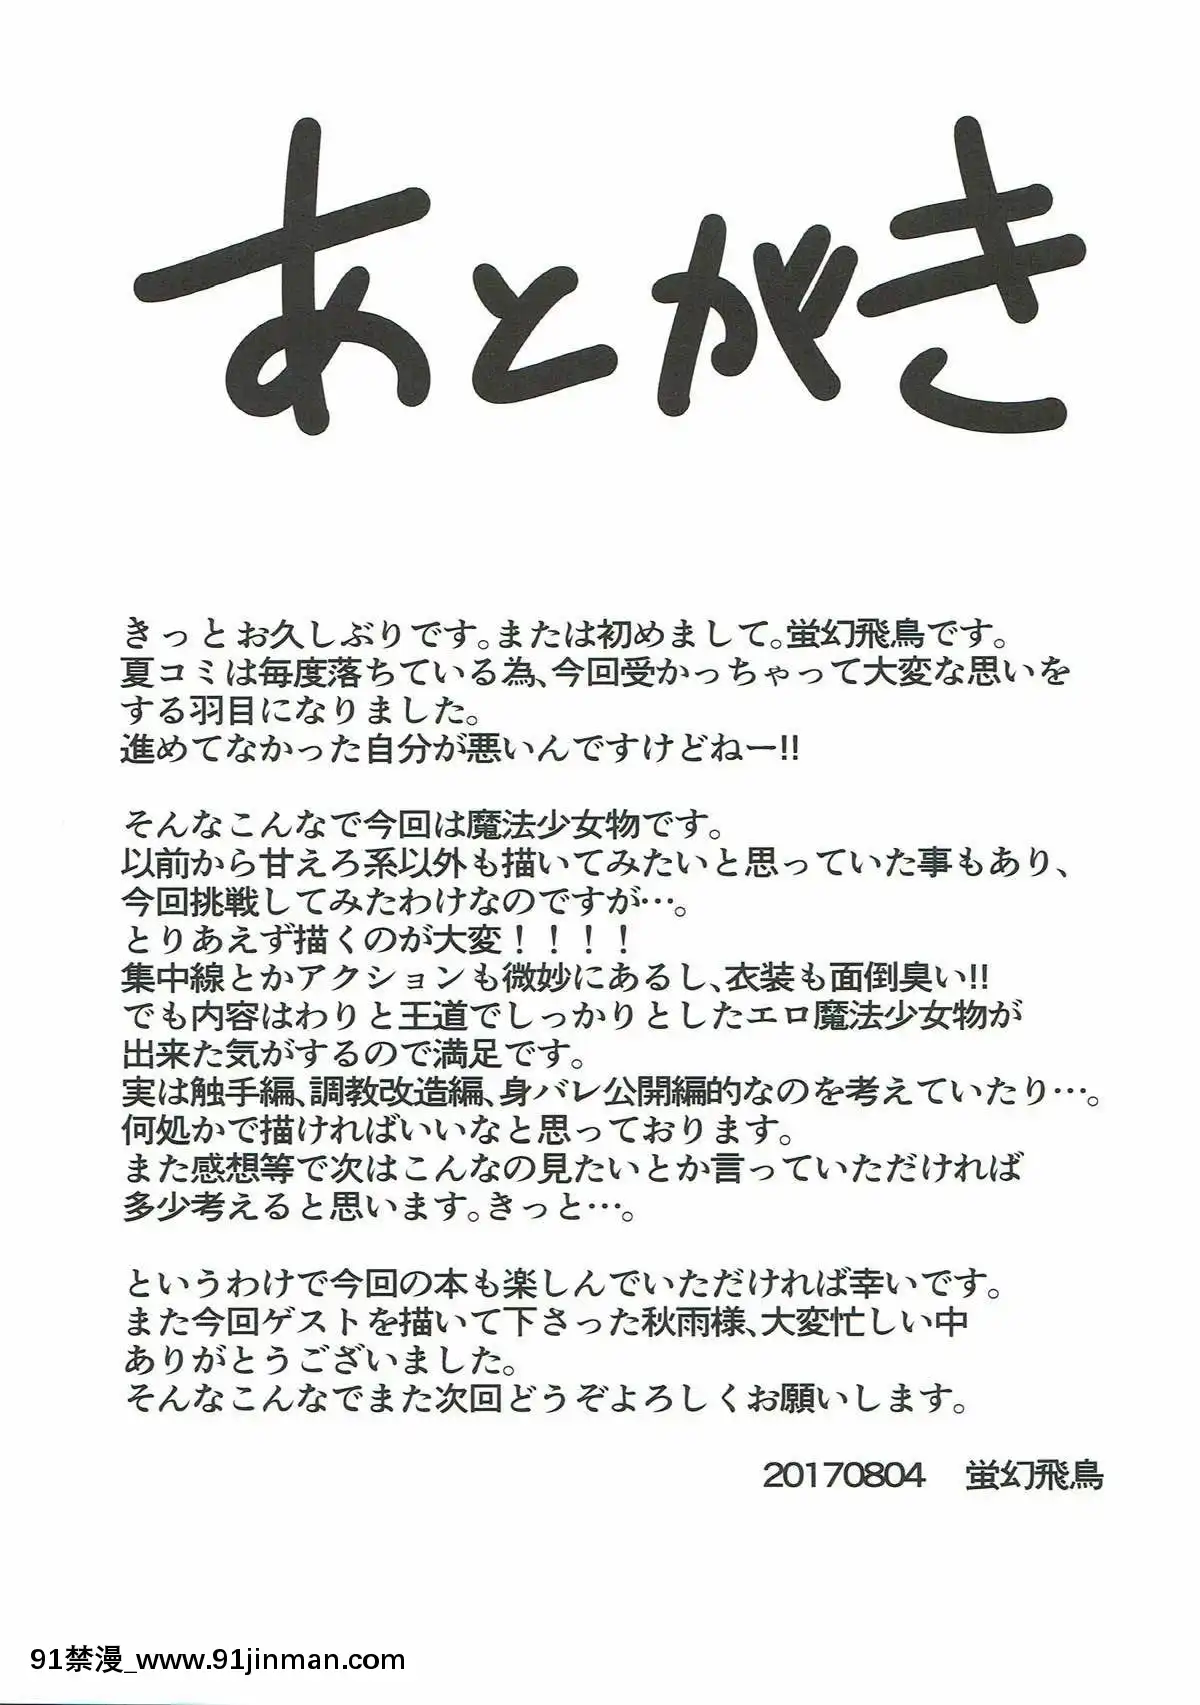 あとがき
きっとお久しぶりです。または初めまして。蛍幻飛鳥です。
夏コミは毎度落ちている為、今回受かっちゃって大変な思いを
する羽目になりました。
進めてなかった自分が悪いんですけどねー!!
そんなこんなで今回は魔法少女物です。
以前から甘えろ系以外も描いてみたいと思っていた事もあり、
今回挑戦してみたわけなのですが…。
とりあえず描くのが大変！！！！
集中線とかアクションも微妙にあるし、衣装も面倒臭い!!
でも内容はわりと王道でしっかりとしたエロ魔法少女物が
出来た気がするので満足です。
実は触手編、調教改造編、身バレ公開編的なのを考えていたり…。
何処かで描ければいいなと思っております。
また感想等で次はこんなの見たいとか言っていただければ
多少考えると思います。きっと…。
というわけで今回の本も楽しんでいただければ幸いです。
また今回ゲストを描いて下さった秋雨様、大変忙しい中
ありがとうございました。
そんなこんなでまた次回どうぞよろしくお願いします。
20170804　蛍幻飛鳥
91禁漫_www.91jinman.com